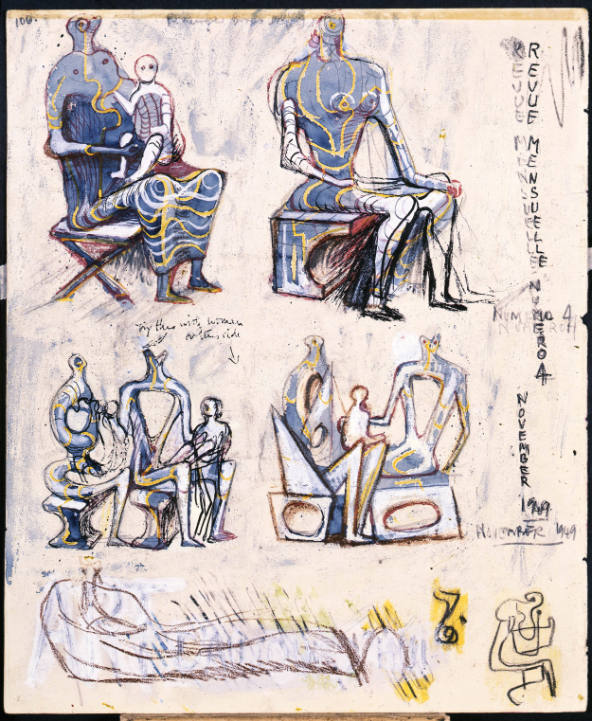 REVUE MENSUELLE NUMERO 4
REVUE MENSUELLE
try this with woman
on this side
NUMERO 4
NUMERO
NOVEMBER
1949
NOVEMBER 1949